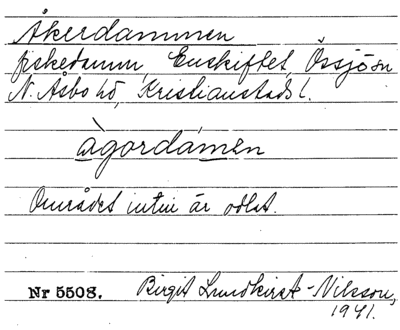 Åkerdammen
fiskedamm, Enskiftet, Össjö sn
N. Åsbo hd, Kristianstads l.
àgordámen
Området intill är odlat.
Nr 5508. Birgit Lundkvist-Nilsson,
1941.